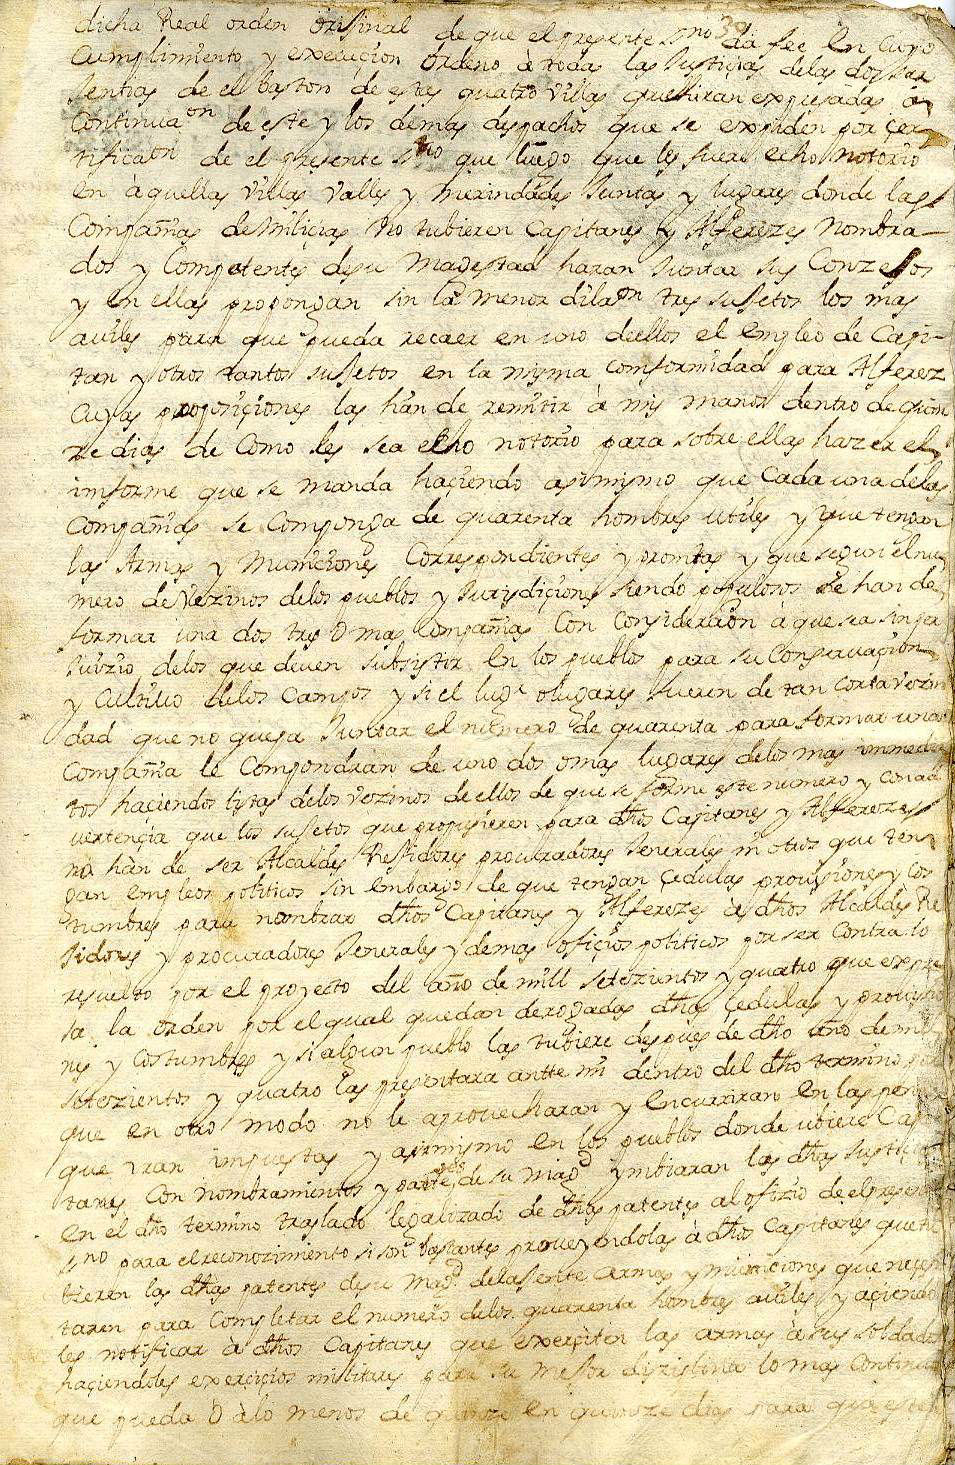 dicha Real orden orijinal de que el presente srno da fee en cuyo
Cumplimiento y execuçion ordeno à todas las Justiçias delas dos
sentias de el baston de estas quatro Villas que hiran expresadas à
Continuaon de este y los demas despachos que se expiden por çer
tificaon de el presente srno que luego que les fuere echo notorio
en àquellas Villas Valles y merindades Juntas y lugares donde las
Compañias de miliçias no tubieren Capitanes y Alferezes Nombra
dos y Competentes de su Magestad haran Juntar sus Conzejos
y en ellas propongan sin la menor dilaon tres sujetos los mas
auiles para que pueda recaer en uno dellos el empleo de Capi-
tan y otros tantos sujetos en la misma conformidad para Alferez
Cuyas proposiçiones las han de remitir à mis manos dentro de quin
ze dias de como les sea echo notorio para sobre ellas hazer el
imforme que se manda haçiendo asimismo que Cada una delas
Compañias se Componga de quarenta hombres utiles y que tengan
las Armas y muniçiones Correspondientes y promtas y que segun el nu
mero de Vezinos delos pueblos y Jurisdiçiones siendo populosos se han de
formar una dos tres o mas Compañias Con Consideraon à que sea sin per
Juizio delos que deuen subsistir en los pueblos para su Conseruaçion
y Cultiuo delos Campos y si el lugr o lugares fueren de tan corta vezin
dad que no pueda Juntar el numero de quarenta para formar una
Compañia le Compondran de uno dos o mas lugares delos mas inmedia
tos haçiendo listas delos vezinos de ellos de que se forme este numero y con ad
vertençia que los sujetos que propusieren para dhos Capitanes y Alferezes
no han de ser Alcaldes Rejidores procuradores Jenerales ni otros que ten
gan empleos politicos sin embargo de que tengan çedulas prouisiones y cos
tumbres para nombrar dhos Capitanes y Alferezes à dhos Alcaldes Re
jidores y procuradores Jenerales y demas ofiçios politicos por ser Contra lo
resuelto por el proyecto del año de mill setezientos y quatro que expre
sa la orden por el qual quedan derogadas dhas Çedulas y prouisio
nes y Costumbres y si algun pueblo las tubiere despues de dho año de mill
setezientos y quatro las presentara antte mi dentro del dho termino
que en otro modo no le aprouecharan y encurriran en las penas
que iran impuestas y asimismo en los pueblos donde ubiere Capi
tanes Con nombramientos y patentes de su magd imbiaran las dhas Justiçias
en el dho termino traslado legalizado de dhas patentes al ofizio de el presente
srno para el reconozimiento si son bastantes proueyendolas à dhos Capitanes que tu
bieren las dhas patentes de su Magd dela Jente armas y muniçiones que neçesi
taren para Completar el numero delos quarenta hombres auiles y açiendo
les notificar à dhos Capitanes que exerçiten las armas à sus soldados
haçiendoles exerçiçios militares para su mejor disziplina lo mas Continuo
que pueda o à lo menos de quinze en quinze dias para que